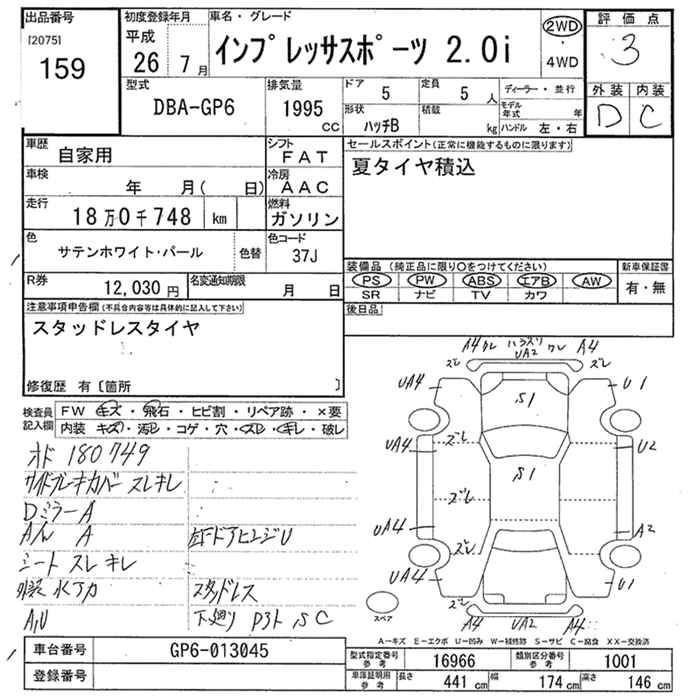 出品番号
[2075]
159
初度登録年月
平成
26 7 月
車名・グレード
インプレッサスポーツ 2.0i
2WD
・
4WD
評価点
3
外装 内装
D C
型式
DBA-GP6
排気量
1995 cc
ドア 5
定員 5 人
ディーラー・並行
形状 ハッチB
積載 kg
モデル年式 年
ハンドル 左・右
車歴 自家用
シフト FAT
車検 年 月( 日)
冷房 AAC
走行 18万0千748 km
燃料 ガソリン
色 サテンホワイト・パール
色替
色コード 37J
R券 12,030 円
名変通知期限 月 日
セールスポイント(正常に機能するものに限ります)
夏タイヤ積込
装備品 (純正品に限り○をつけてください)
新車保証書
PS PW ABS エアB AW
有・無
SR ナビ TV カワ
後日品
注意事項申告欄(不具合内容等は具体的に記入して下さい)
スタッドレスタイヤ
修復歴 有〔箇所 〕
検査員記入欄
FW キズ・飛石・ヒビ割・リペア跡・×要
内装 キズ・汚レ・コゲ・穴・スレ・キレ・破レ
オド 180749
サイドブレーキカバー スレキレ
Dミラー A
A/ル A
左Fドアヒンジ U
シート スレ キレ
外装 水アカ
スタッドレス
A,U
下廻り P3ト, S C
A4 クレ ハラスリ クレ A4
ズレ UA2 ズレ
UA4 U1
S1
UA4 ズレ U2
S1
ズレ
UA4 A2
ズレ
UA4 U1
スペア
ズレ ズレ
A4 UA2 A4
A−キズ E−エクボ U−凹み W−補修跡 S−サビ C−腐食 XX−交換済
車台番号 GP6-013045
登録番号
型式指定番号参考 16966
類別区分番号参考 1001
車庫証明用参考
長さ 441 cm
幅 174 cm
高さ 146 cm